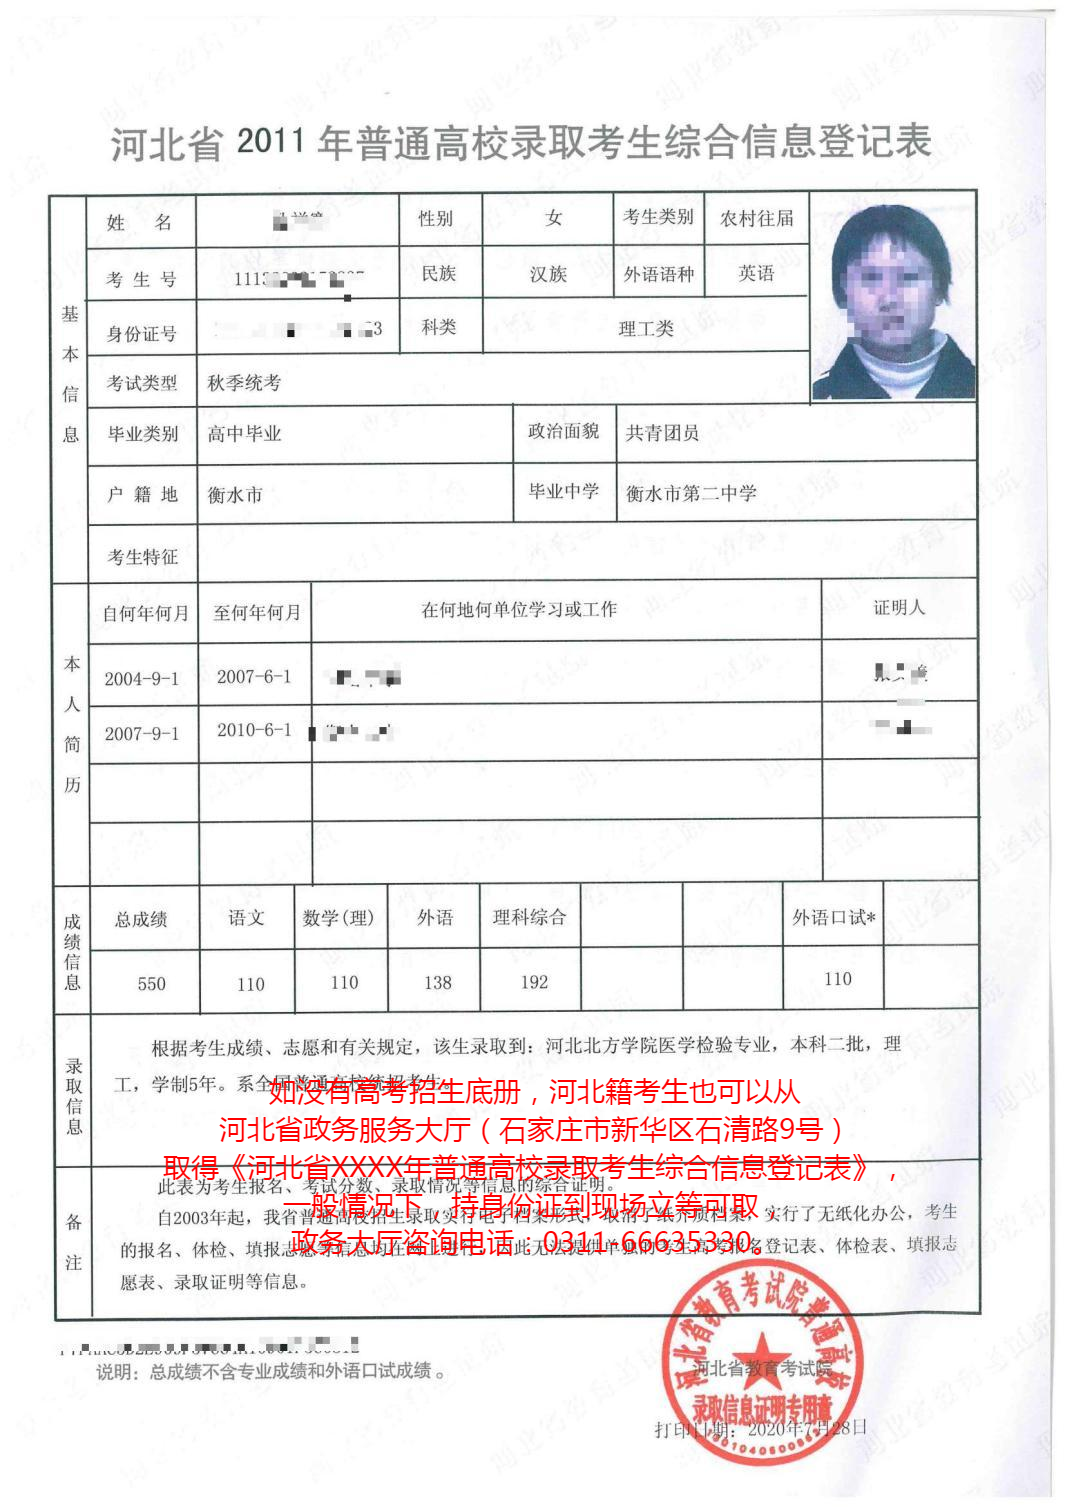 河北省 2011 年普通高校录取考生综合信息登记表
基本信息
姓 名 性别 女 考生类别 农村往届
考 生 号 民族 汉族 外语语种 英语
身份证号 科类 理工类
考试类型 秋季统考
毕业类别 高中毕业 政治面貌 共青团员
户 籍 地 衡水市 毕业中学 衡水市第二中学
考生特征
本人简历
自何年何月 至何年何月 在何地何单位学习或工作 证明人
2004-9-1 2007-6-1
2007-9-1 2010-6-1
成绩信息
总成绩 语文 数学(理) 外语 理科综合 外语口试*
550 110 110 138 192 110
录取信息
根据考生成绩、志愿和有关规定，该生录取到：河北北方学院医学检验专业，本科二批，理
工，学制5年。系全国普通高校统招考生。
如没有高考招生底册，河北籍考生也可以从
河北省政务服务大厅（石家庄市新华区石清路9号）
取得《河北省XXXX年普通高校录取考生综合信息登记表》，
一般情况下，持身份证到现场立等可取，
政务大厅咨询电话：0311-66635330。
备注
此表为考生报名、考试分数、录取情况等信息的综合证明。
自2003年起，我省普通高校招生录取实行电子档案形式，取消了纸介质档案，实行了无纸化办公，考生
的报名、体检、填报志愿等信息均在网上进行，因此无法提供单独的考生高考报名登记表、体检表、填报志
愿表、录取证明等信息。
说明：总成绩不含专业成绩和外语口试成绩。
河北省教育考试院普通高校
录取信息证明专用章
河北省教育考试院
打印日期：2020年7月28日